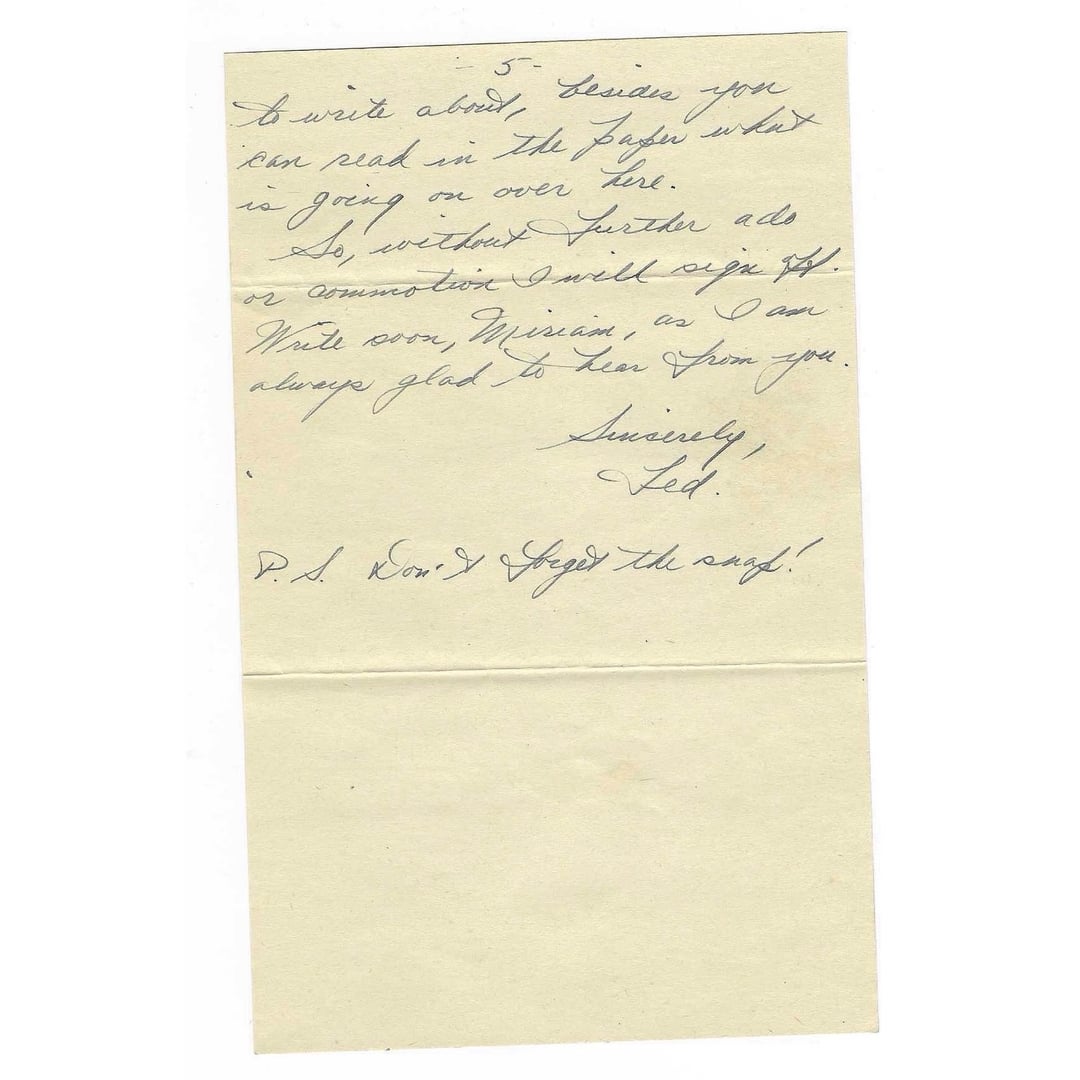 - 5 -
to write about, besides you
can read in the paper what
is going on over here.
So, without further ado
or commotion I will sign off.
Write soon, Miriam, as I am
always glad to hear from you.
Sincerely,
Ted.
P. S. Don't forget the snap!